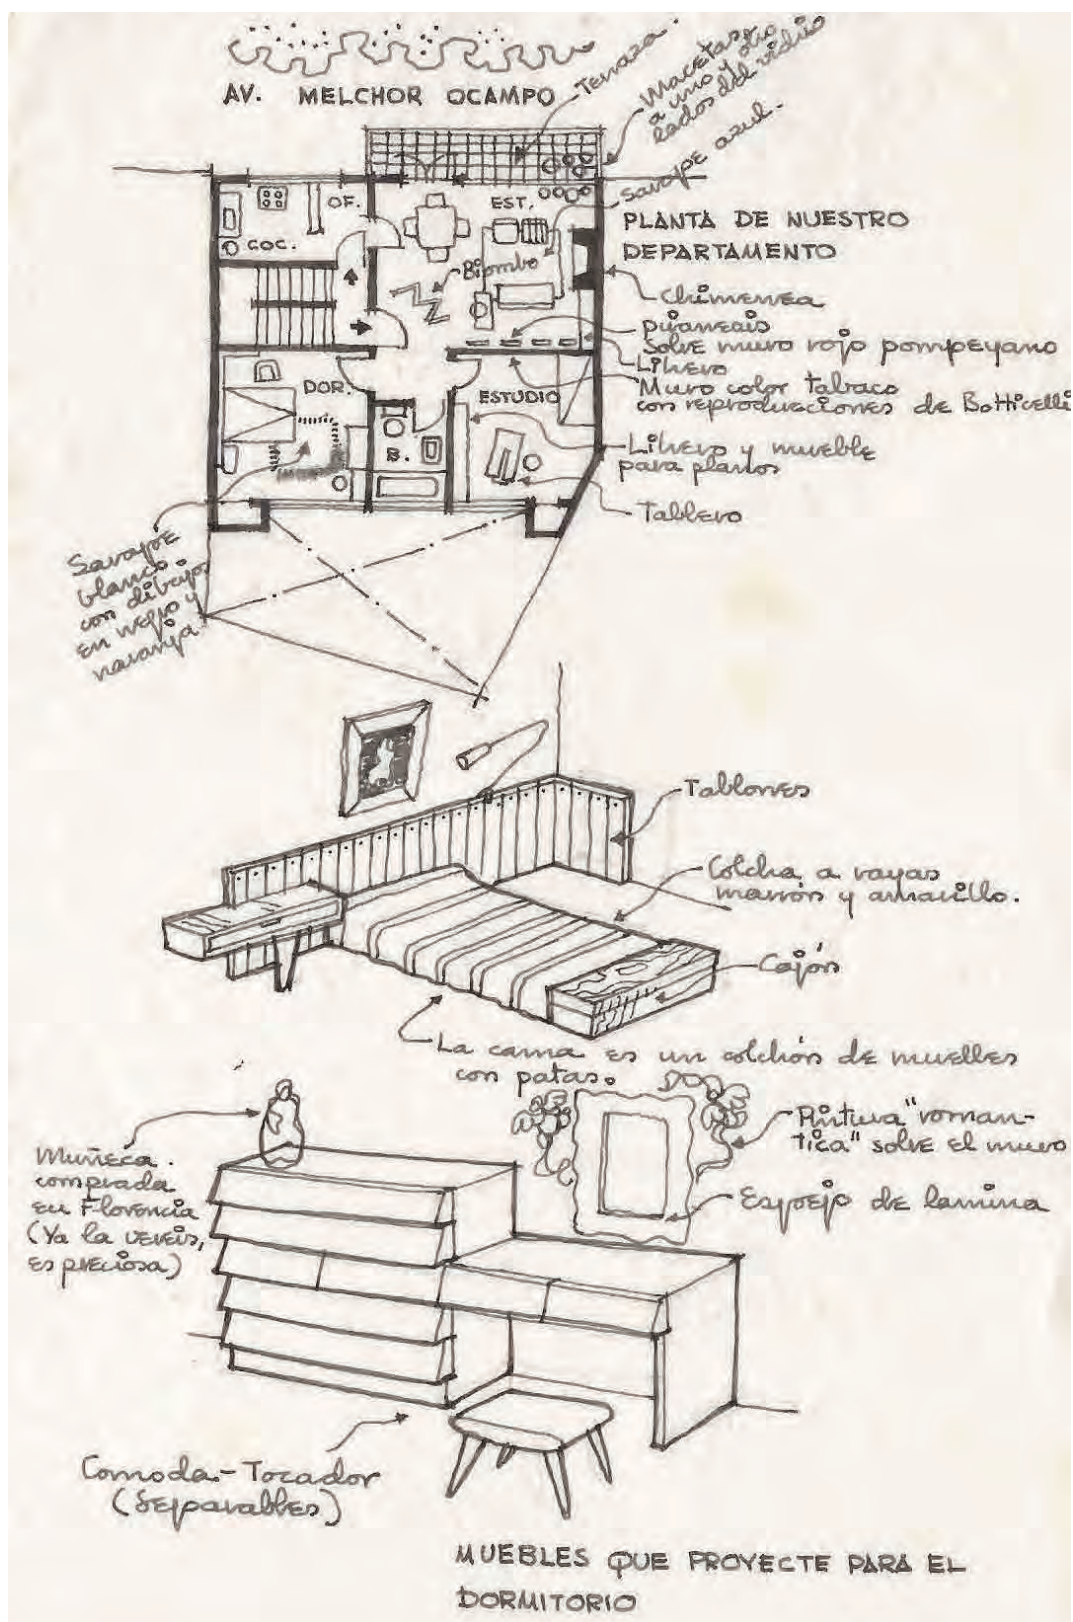 AV. MELCHOR OCAMPO
Terraza.
Macetas
a uno y otro
lados del vidrio
Sarape azul.
OF.
EST.
COC.
PLANTA DE NUESTRO
DEPARTAMENTO
Biombo
Chimenea
piraneais
sobre muro rojo pompeyano
Librero
Muro color tabaco
con reproducciones de Botticelli
DOR.
ESTUDIO
B.
Librero y mueble
para planos
Tablero
Sarape
blanco
con dibujos
en negro y
naranja.
Tablones
Colcha a rayas
marrón y amarillo.
Cajón
La cama es un colchón de muelles
con patas.
Muñeca
comprada
en Florencia
(Ya la vereis,
es preciosa)
Pintura "roman-
tica" sobre el muro
Espejo de lamina
Comoda-Tocador
(Separables)
MUEBLES QUE PROYECTE PARA EL
DORMITORIO